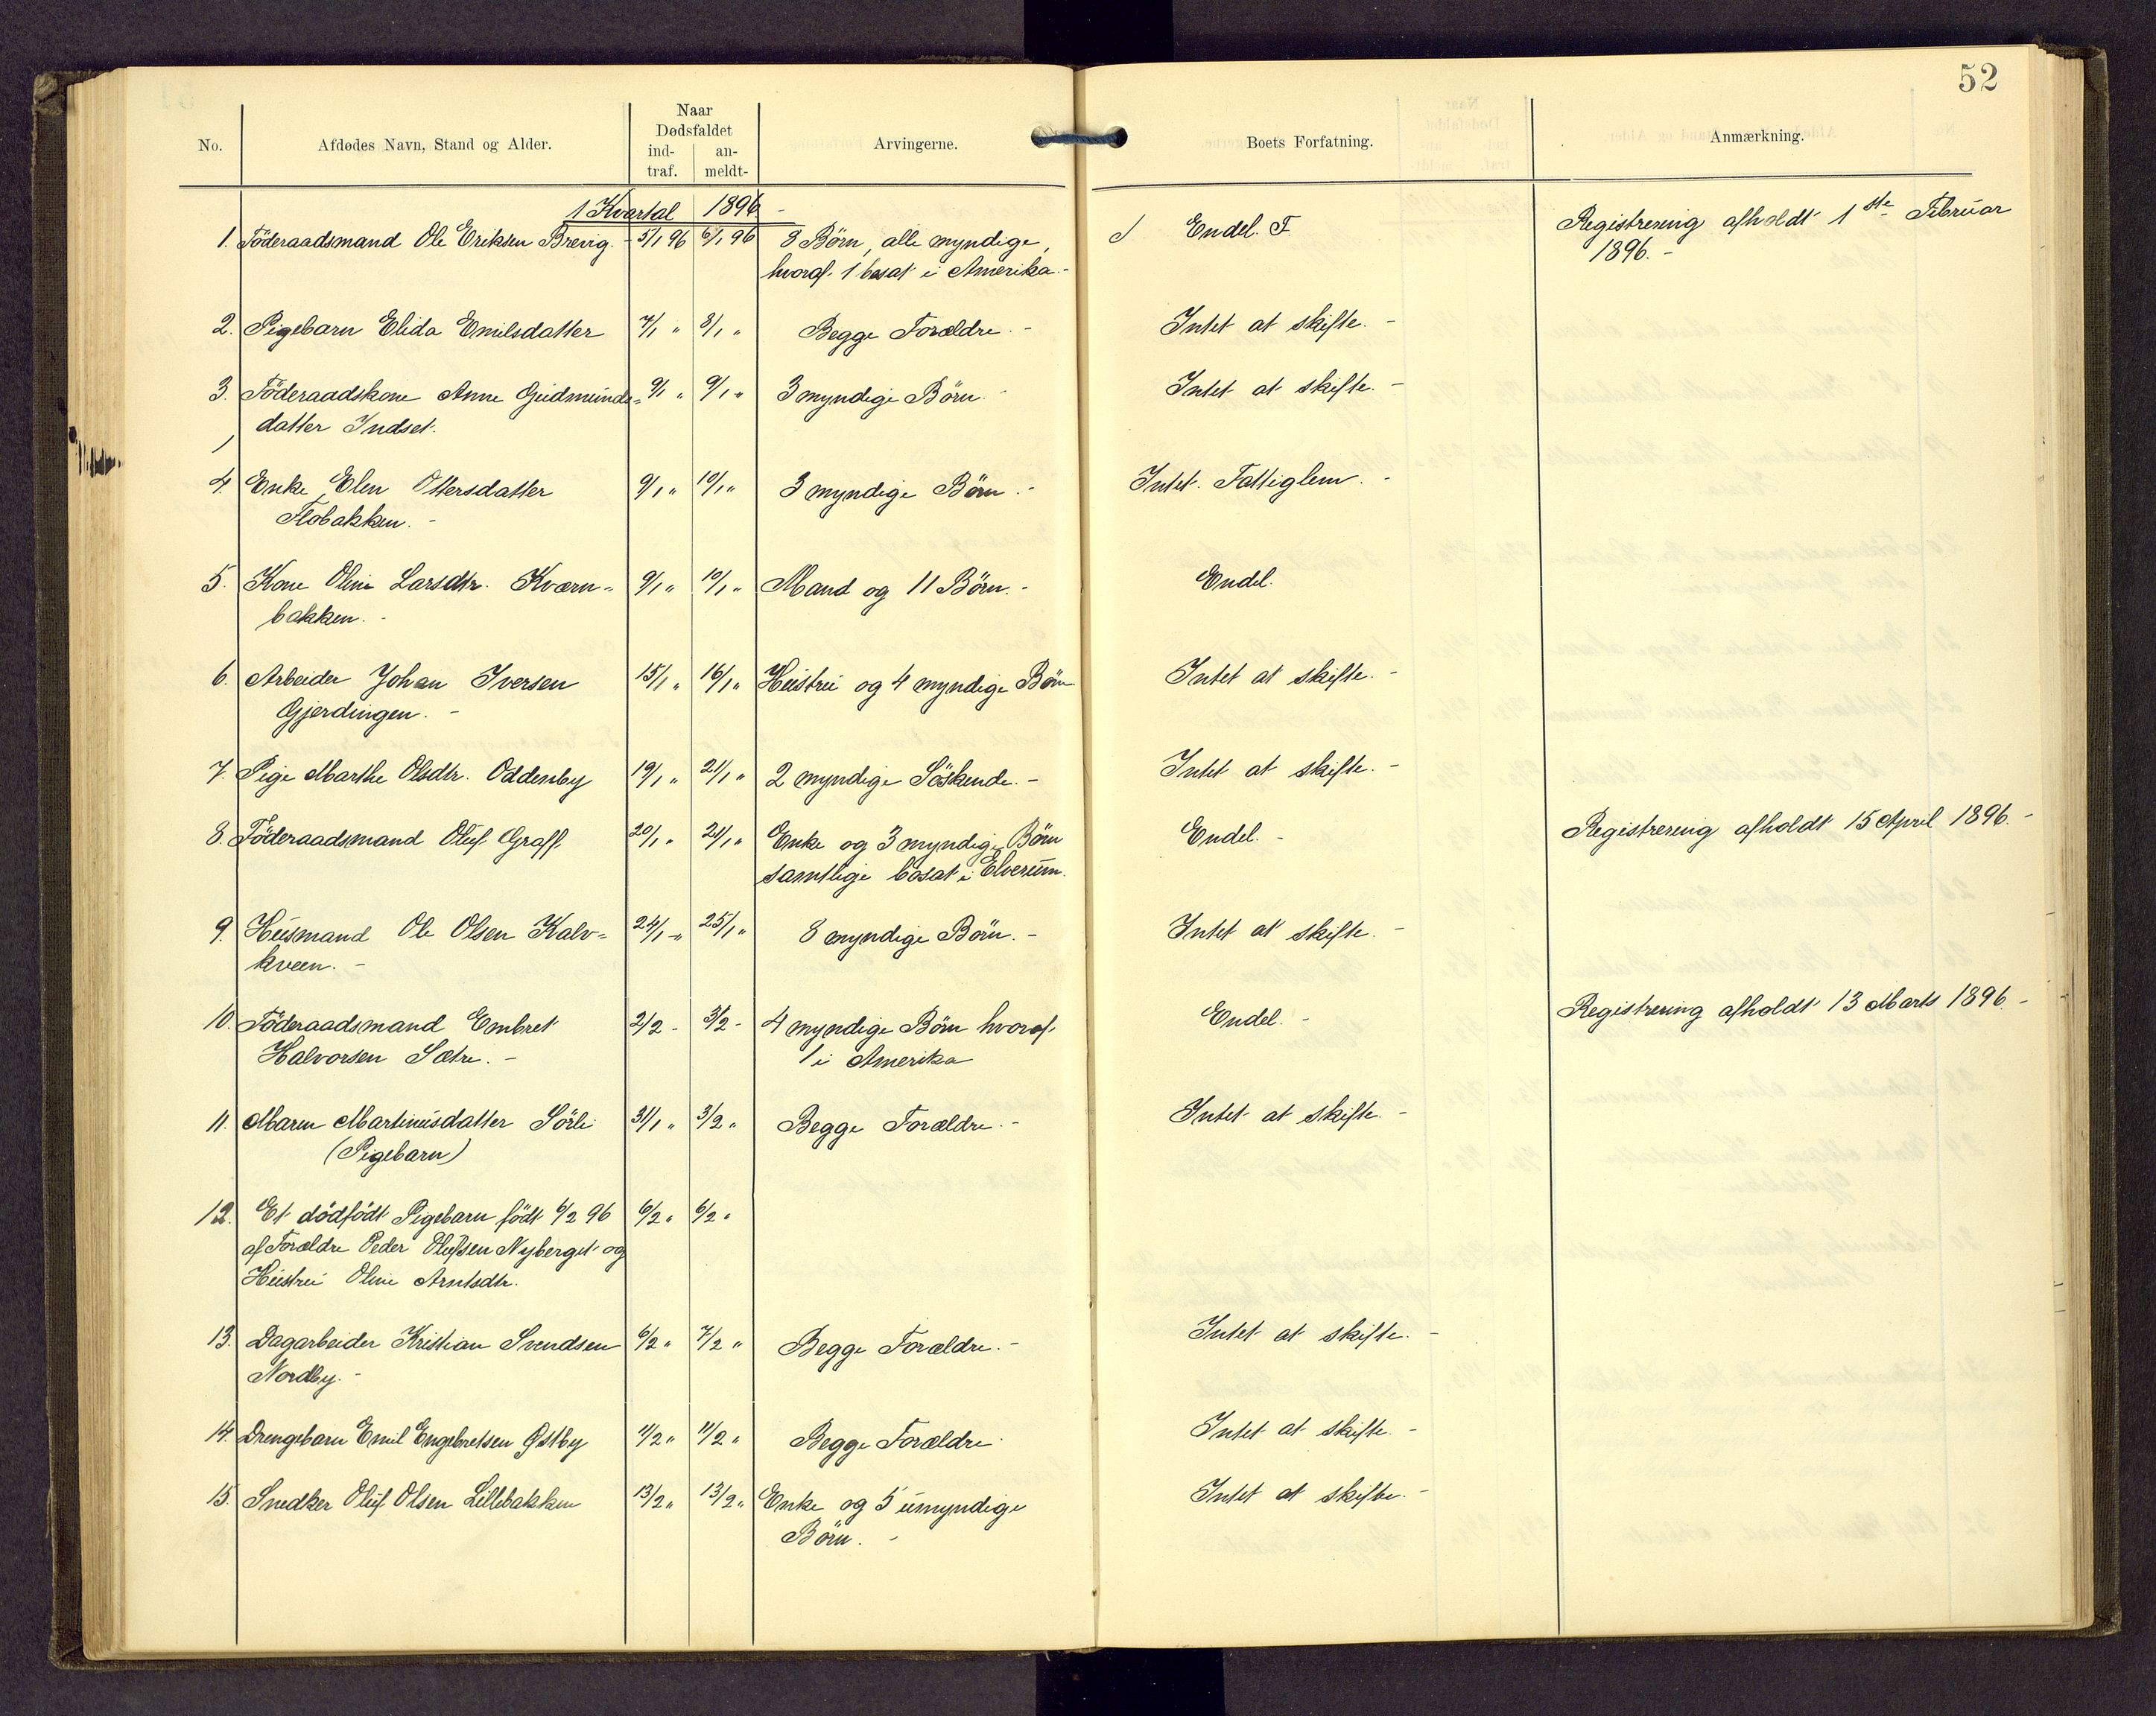 52
No.
Afdødes Navn, Stand og Alder.
Naar
Dødsfaldet
ind-
traf.
an-
meldt-
Arvingerne.
Boets Forfatning.
Anmærkning.
1 Kvartal 1896 -
1. Föderaadsmand Ole Eriksen Brevig. - 5/1 96 6/1 96 8 Börn, alle myndige, Endel. F. Registrering afholdt 1ste Februar
hvoraf 1 bosat i Amerika. - 1896. -
2. Pigebarn Elida Emilsdatter 7/1 " 8/1 " Begge Forældre. - Intet at skifte. -
3. Föderaadskone Anne Gudmunds= 9/1 " 9/1 " 3 myndige Börn. Intet at skifte. -
datter Indset.
4. Enke Elen Ottersdatter 9/1 " 10/1 " 3 myndige Börn. - Intet. Fattiglem. -
Flobakken. -
5. Kone Oline Larsdtr. Kværn= 9/1 " 10/1 " Mand og 11 Börn. - Endel.
bakken. -
6. Arbeider Johan Iversen 15/1 " 16/1 " Hustru og 4 myndige Börn Intet at skifte. -
Gjerdingen. -
7. Pige Marthe Olsdtr. Oddenby 19/1 " 21/1 " 2 myndige Söskende. - Intet at skifte. -
8. Föderaadsmand Oluf Graff 20/1 " 21/1 " Enke og 3 myndige Börn Endel. - Registrering afholdt 15 April 1896. -
samtlige bosat i Elverum.
9. Husmand Ole Olsen Kalv= 24/1 - " 25/1 " 8 myndige Börn. - Intet at skifte. -
kveen. -
10. Föderaadsmand Embret 2/2 - 3/2 - 4 myndige Börn hvoraf Endel. - Registrering afholdt 13 Marts 1896. -
Halvorsen Sætre. - 1 i Amerika
11. Maren Martinusdatter Sörli 31/1 " 3/2 " Begge Forældre. - Intet at skifte. -
(Pigebarn)
12. Et dödfödt Pigebarn födt 6/2 96 6/2 " 6/2 "
af Forældre Peder Olufsen Nyberget og
Hustru Oline Arntsdtr.
13. Dagarbeider Kristian Svendsen 6/2 " 7/2 " Begge Forældre. - Intet at skifte. -
Nordby. -
14. Drengebarn Emil Engebretsen Østby 11/2 " 11/2 " Begge Forældre Intet at skifte. -
15. Snedker Oluf Olsen Lillebakken 13/2 " 13/2 " Enke og 5 umyndige Intet at skifte. -
Börn. -